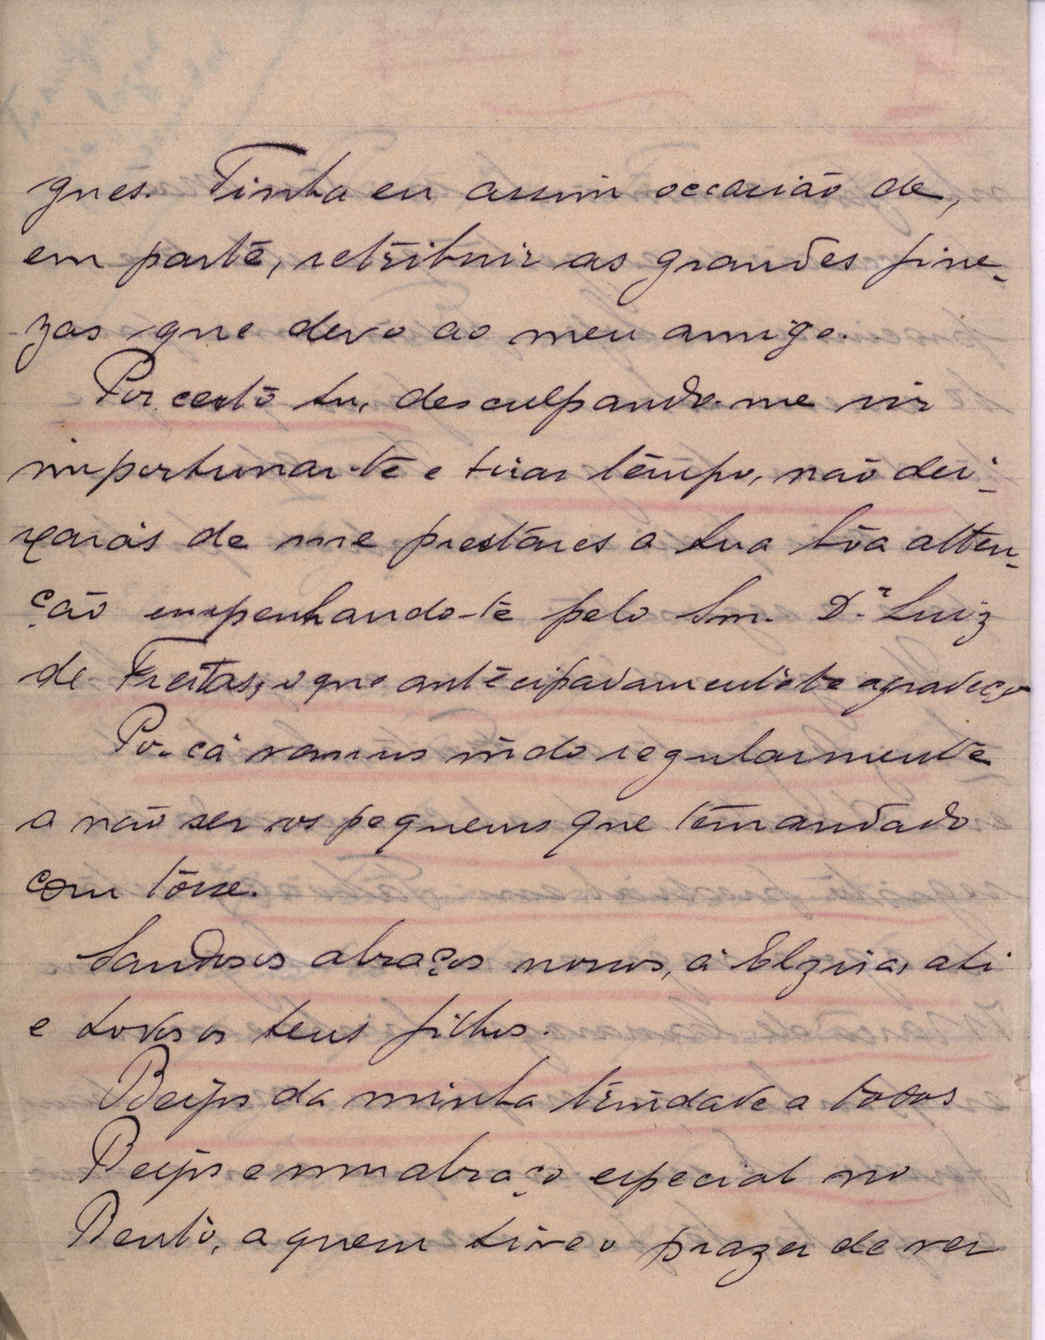 gues. Tinha eu assim occasião de,
em parte, retribuir as grandes fine-
zas que devo ao meu amigo.
Por certo tu, desculpando-me vir
importunar-te e tirar tempo, não dei-
xarás de me prestares a tua bôa atten-
ção empenhando-te pelo Snr. Dr. Luiz
de Freitas, o que antecipadamente te agradeço
Por cá vamos indo regularmente
a não ser os pequenos que têm andado
com tosse.
Saudosos abraços nossos, á Elzira, a ti
e todos os teus filhos.
Beijos da minha trindade a todos
Beijos e um abraço especial no
Bento, a quem tive o prazer de ver